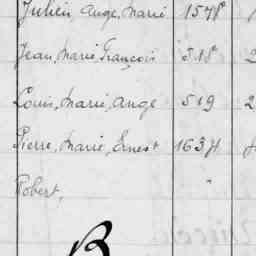 Julien Ange, Marie 1578
Jean, Marie, François 518 2
Louis, Marie, Ange 519 2
Pierre, Marie, Ernest 1634
Robert, "
B